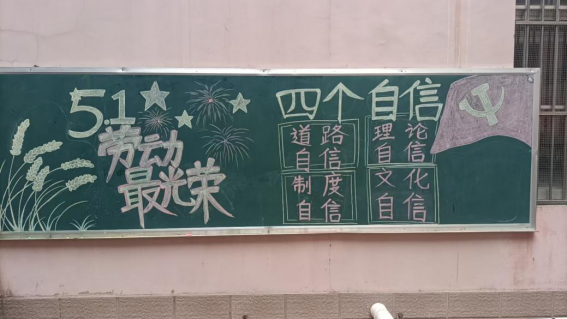 5.1
劳动
最光荣
四个自信
道路
自信
理论
自信
制度
自信
文化
自信